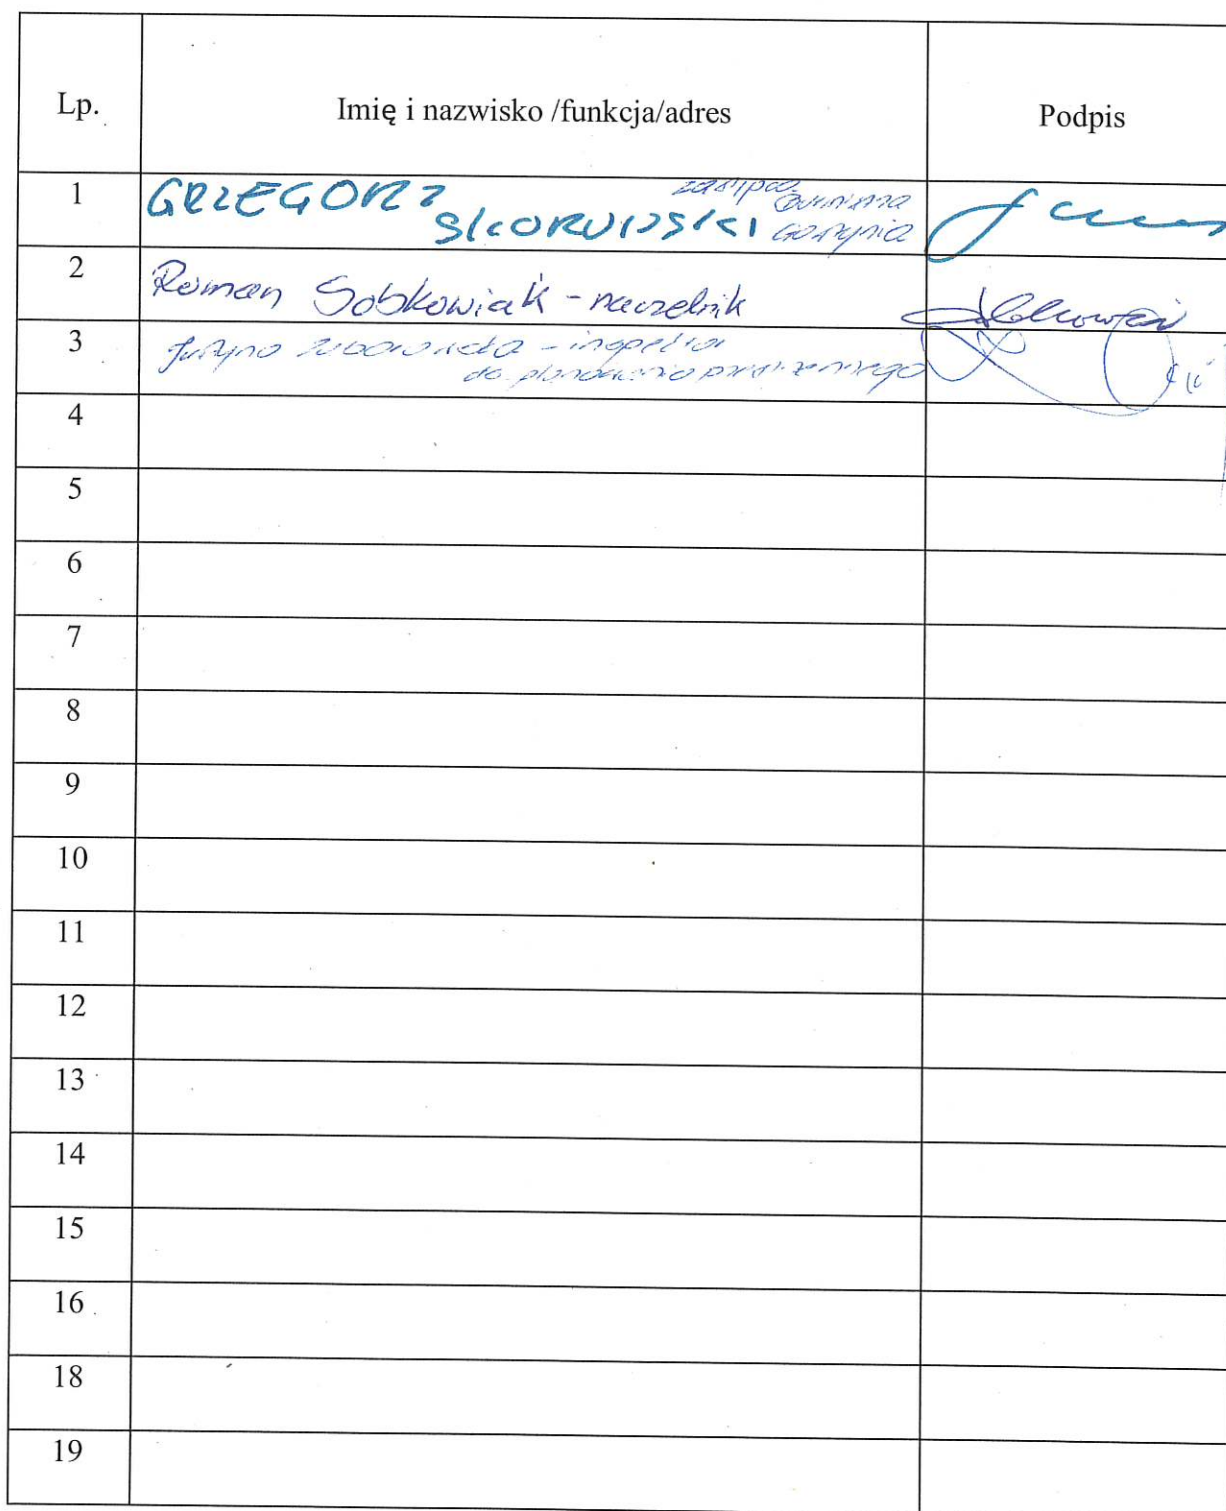 Lp. Imię i nazwisko /funkcja/adres Podpis
1 GRZEGORZ zastępca Burmistrza
SKORUPSKI Gostynia
2 Roman Sobkowiak - naczelnik
3 Justyna - inspektor
do planowania przestrzennego
4
5
6
7
8
9
10
11
12
13
14
15
16
18
19